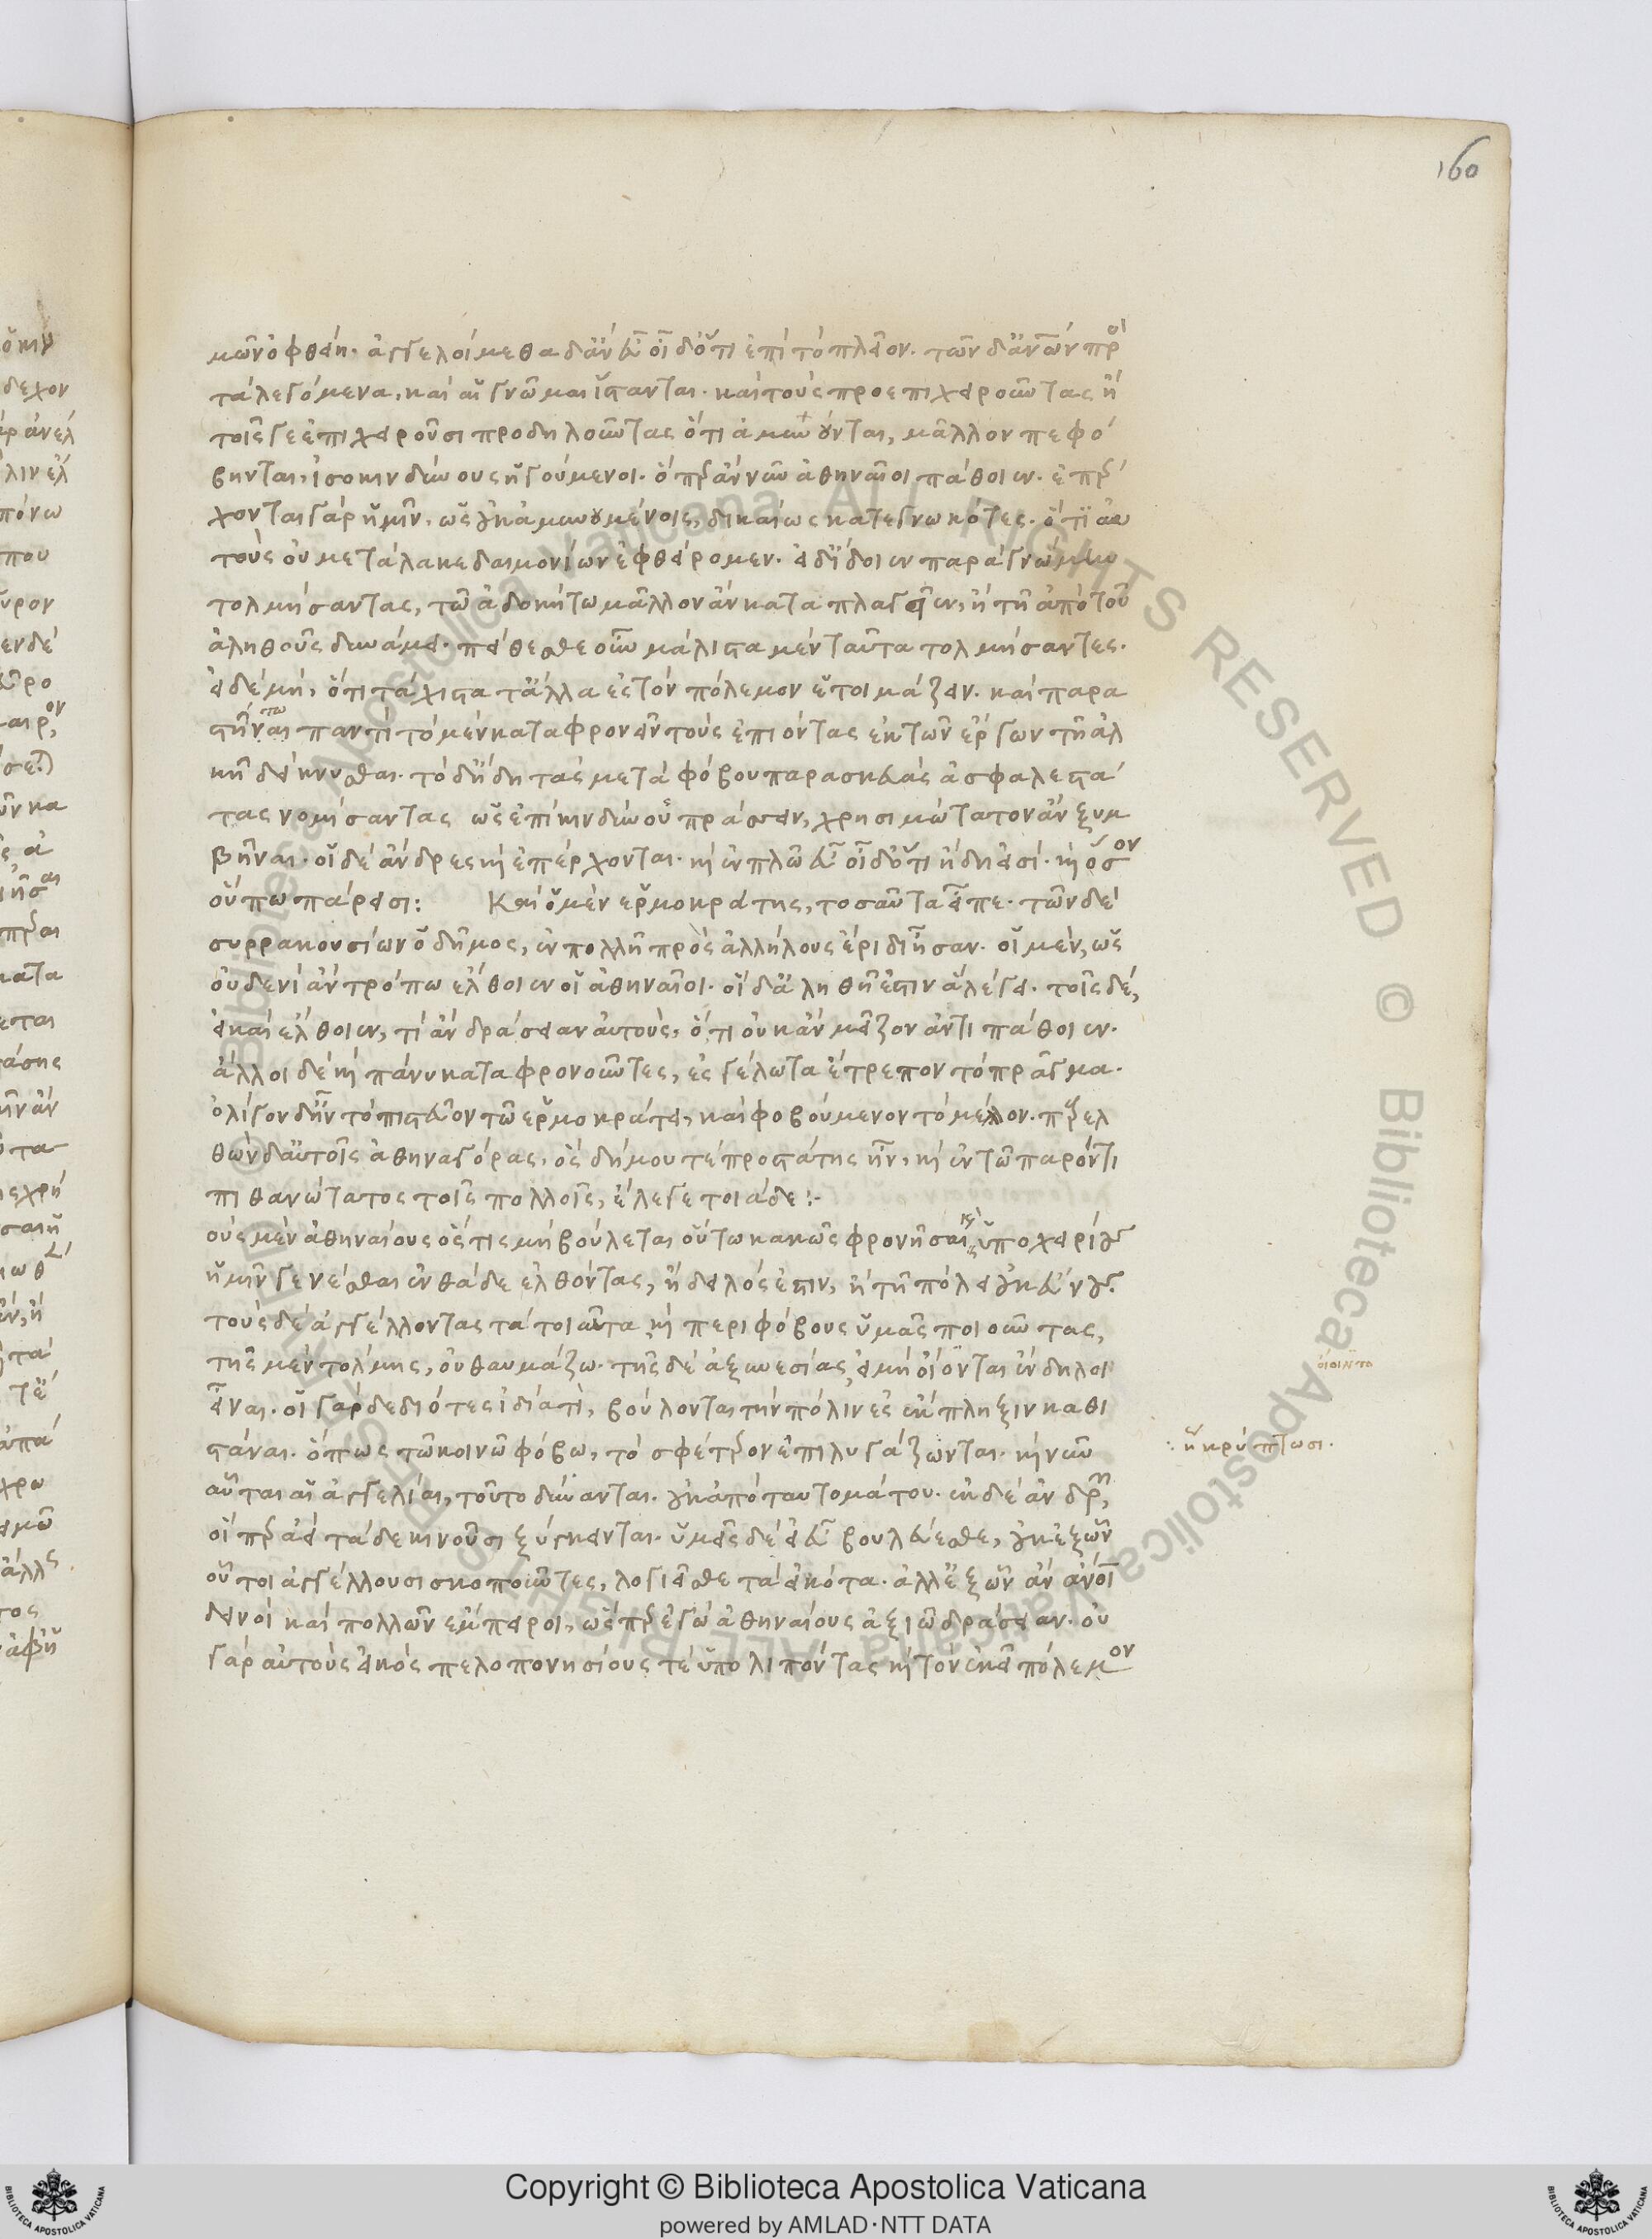 160
μῶν ὀφθείη. ἀγγελοίμεθα δ' ἂν εὖ οἶδ' ὅτι ἐπὶ τὸ πλεῖον. τῶν δ' ἀνθρώπων πρὸς
τὰ λεγόμενα, καὶ αἱ γνῶμαι ἵστανται. καὶ τοὺς προεπιχειροῦντας ἢ
τοῖς γε ἐπιχειροῦσι προδηλοῦντας ὅτι ἀμυνοῦνται, μᾶλλον πεφό
βηνται, ἰσοκινδύνους ἡγούμενοι. ὅπερ ἂν νῦν ἀθηναῖοι πάθοιεν. ἐπέρ
χονται γὰρ ἡμῖν, ὡς οὐκ ἀμυνουμένοις, δικαίως κατεγνωκότες. ὅτι αὐ
τοὺς οὐ μετὰ λακεδαιμονίων ἐφθείρομεν. εἰ δ' ἴδοιεν παρὰ γνώμην
τολμήσαντας, τῶ ἀδοκήτω μᾶλλον ἂν καταπλαγεῖεν, ἢ τῇ ἀπὸ τοῦ
ἀληθοῦς δυνάμει. πείθεσθε οὖν μάλιστα μὲν ταῦτα τολμήσαντες.
εἰ δὲ μή, ὅτι τάχιστα τἄλλα ἐς τὸν πόλεμον ἑτοιμάζειν. καὶ παρα
στῆναι παντὶ τὸ μὲν καταφρονεῖν τοὺς ἐπιόντας ἐκ τῶν ἔργων τῇ ἀλ
κῇ δείκνυσθαι. τὸ δ' ἤδη τὰς μετὰ φόβου παρασκευὰς ἀσφαλεστά
τας νομίσαντας ὡς ἐπὶ κινδύνου πράσσειν, χρησιμώτατον ἂν ξυμ
βῆναι. οἱ δὲ ἄνδρες καὶ ἐπέρχονται. καὶ ἐν πλῶ εὖ οἶδ' ὅτι ἤδη εἰσί. καὶ ὅσον
οὔπω πάρεισι: Καὶ ὁ μὲν ἑρμοκράτης, τοσαῦτα εἶπε. τῶν δὲ
συρρακουσίων ὁ δῆμος, ἐν πολλῇ πρὸς ἀλλήλους ἔριδι ἦσαν. οἱ μὲν, ὡς
οὐδενὶ ἂν τρόπω ἔλθοιεν οἱ ἀθηναῖοι. οἱ δ' ἀληθῆ ἐστιν ἃ λέγει. τοῖς δέ,
εἰ καὶ ἔλθοιεν, τί ἂν δράσειαν αὐτούς, ὅτι οὐκ ἂν μεῖζον ἀντιπάθοιεν.
ἄλλοι δὲ καὶ πάνυ καταφρονοῦντες, ἐς γέλωτα ἔτρεπον τὸ πρᾶγμα.
ὀλίγον δ' ἦν τὸ πιστεῦον τῶ ἑρμοκράτει, καὶ φοβούμενον τὸ μέλλον. παρελ
θὼν δ' αὐτοῖς ἀθηναγόρας, ὃς δήμου τὲ προστάτης ἦν, καὶ ἐν τῶ παρόντι
πιθανώτατος τοῖς πολλοῖς, ἔλεγε τοιάδε:-
οὓς μὲν ἀθηναίους ὅστις μὴ βούλεται οὕτω κακῶς φρονῆσαι, καὶ ὑποχειρίους
ἡμῖν γενέσθαι ἐνθάδε ἐλθόντας, ἢ δειλός ἐστιν, ἢ τῇ πόλει οὐκ εὔνους.
τοὺς δὲ ἀγγέλλοντας τὰ τοιαῦτα καὶ περιφόβους ὑμᾶς ποιοῦντας,
τῆς μὲν τόλμης, οὐ θαυμάζω. τῆς δὲ ἀξυνεσίας, εἰ μὴ οἴονται ἔνδηλοι
εἶναι. οἱ γὰρ δεδιότες ἰδίᾳ τι, βούλονται τὴν πόλιν ἐς ἔκπληξιν καθι
στάναι. ὅπως τῶ κοινῶ φόβω, τὸ σφέτερον ἐπηλυγάζωνται. καὶ νῦν
: ἢ κρύπτωσι.
αὗται αἱ ἀγγελίαι, τοῦτο δύνανται. οὐκ ἀπὸ ταυτομάτου. ἐκ δὲ ἀνδρῶν,
οἵπερ ἀεὶ τάδε κινοῦσι ξύγκεινται. ὑμεῖς δὲ εἰ εὖ βουλεύεσθε, οὐκ ἐξ ὧν
οὗτοι ἀγγέλλουσι σκοποῦντες, λογιεῖσθε τὰ εἰκότα. ἀλλ' ἐξ ὧν ἂν ἄνοι
δεινοὶ καὶ πολλῶν ἔμπειροι, ὥσπερ ἐγὼ ἀθηναίους ἀξιῶ δράσειαν. οὐ
γὰρ αὐτοὺς εἰκὸς πελοπονησίους τὲ ὑπολιπόντας καὶ τὸν ἐκεῖ πόλεμον
© Biblioteca Apostolica Vaticana ALL RIGHTS RESERVED
Copyright © Biblioteca Apostolica Vaticana
powered by AMLAD·NTT DATA
BIBLIOTECA APOSTOLICA VATICANA
BIBLIOTECA APOSTOLICA VATICANA